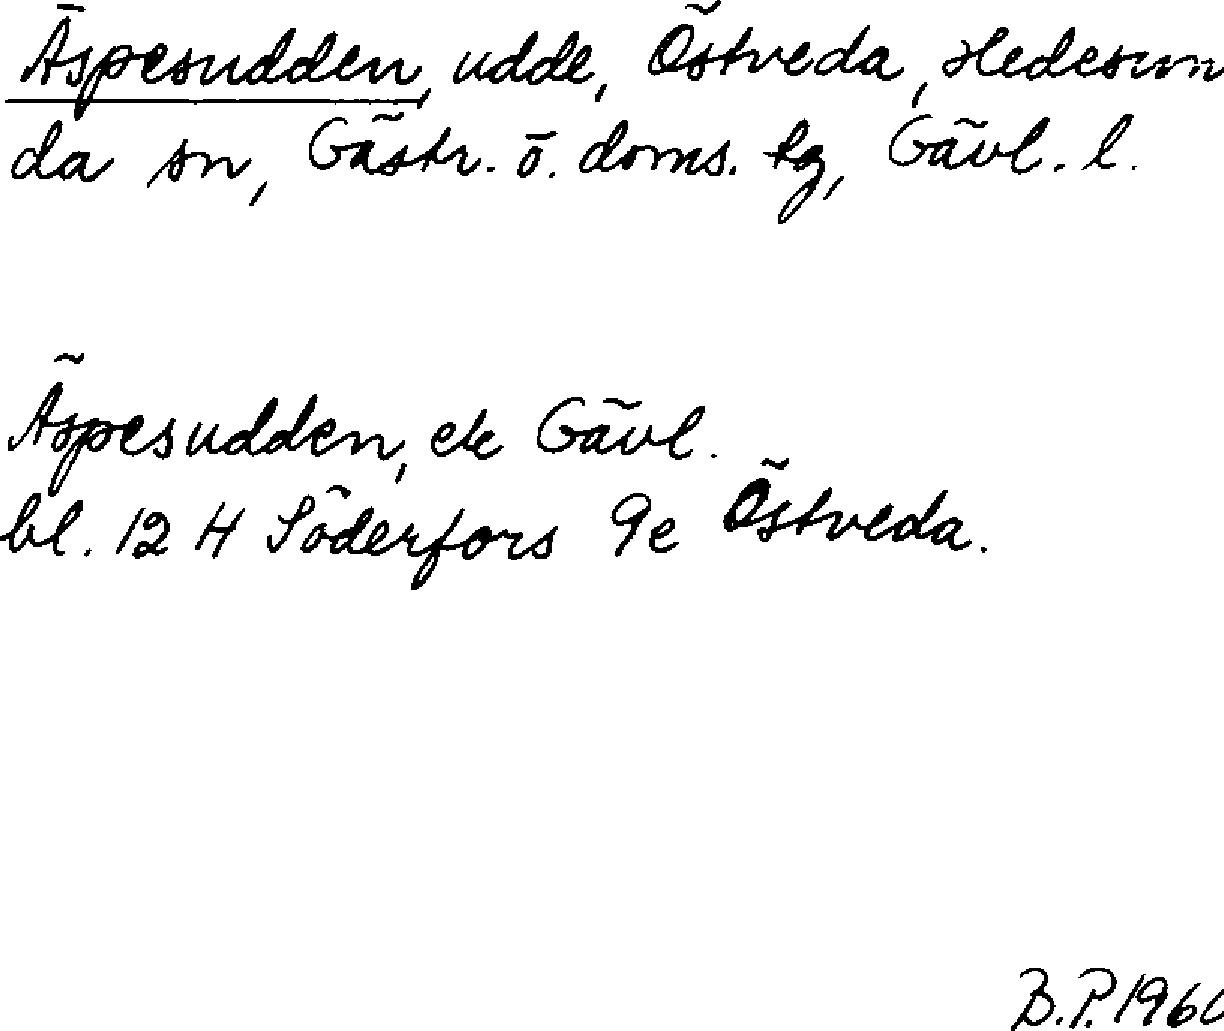 Äspesudden, udde, Östveda, Hedesun
da sn, Gästr. ö. doms. tg, Gävl. l.
Äspesudden, ek Gävl.
bl. 12 H Söderfors 9e Östveda.
B.P. 1960